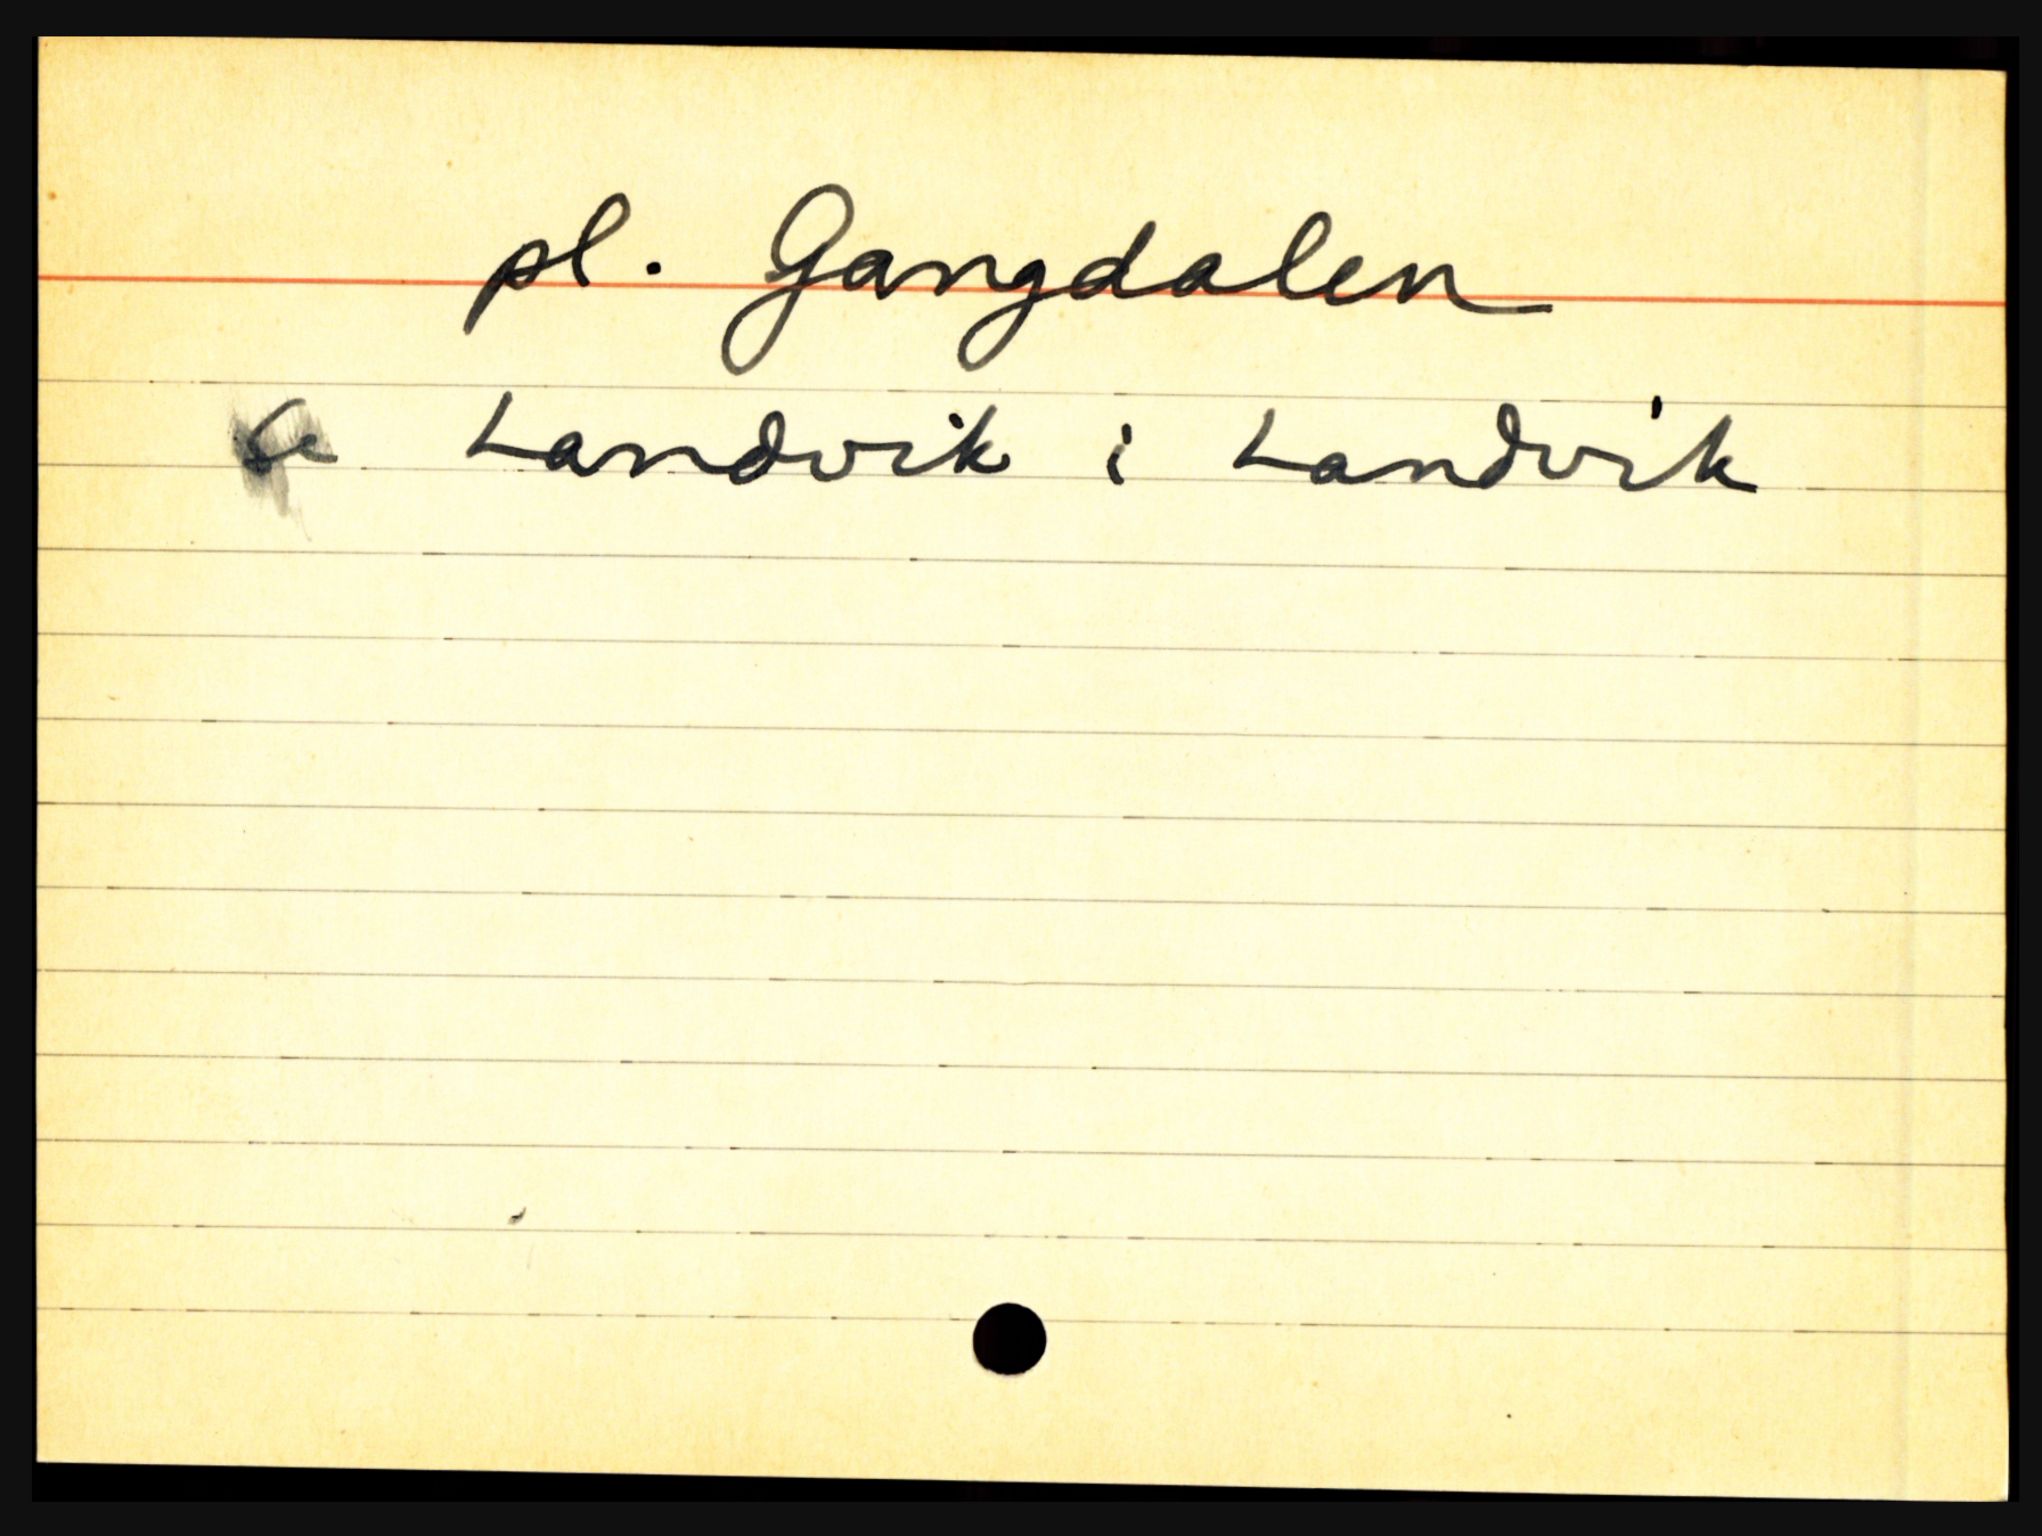 pl. Gangdalen
se Landvik i Landvik